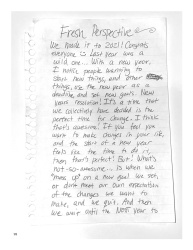 Fresh Perspective
We made it to 2021! Congrats
everyone is Last year was a
wild one... With a new year,
I notice people wanting to
start new things, and other
things, use the new year as a
deadline and set new goals. New
years resolution. It's a time that
we collectively have decided is the
perfect time for change. I think
that's awesome! If you feel you
want to make changes in your life,
and the start of a new year
feels like the time to do it,
then that's perfect! But, what's
not-so-awesome... is when we
"mess up" on a new goal we set,
or don't meet our own expectation
of the changes we want to
make, and we quit. And then
we wait until the NEXT year to